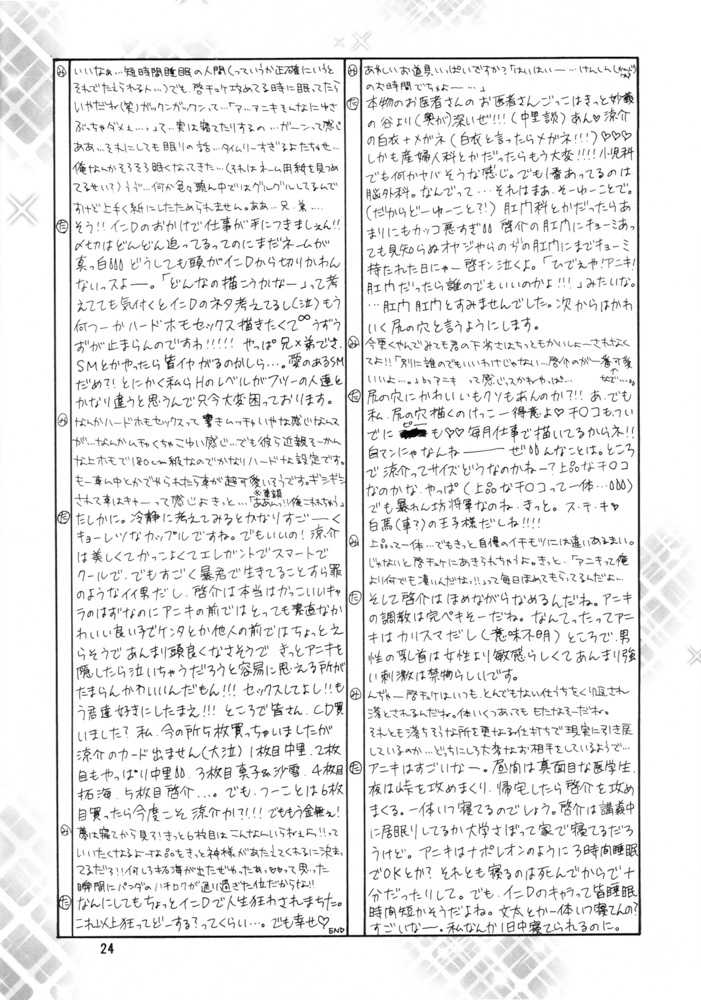 み あやしいお道具いっぱいですか?「はいはいー…けんしんしましょうか
のお時間でちよー…」
だ 本物のお医者さんの お医者さんごっこはきっと妙義
の谷より(奥が)深いぜ!!!(中里談)あん♡涼介
の白衣+メガネ(白衣と言ったらメガネ!!!)♡♡♡
しかも産婦人科とかだったらもう大変!!!!小児科
でも何かヤバそうな感じ。でも1番あってるのは
脳外科。なんでって…それはまあ、そーゆーことで。
(だからどーゆーこと?!)肛門科とかだったらあ
まりにもカッコ悪すぎ 啓介の肛門にキョーミあっ
ても見知らぬオヤジやらのぢの肛門にまでキョーミ
持たれた日にゃー啓チン泣くよ。「ひでぇや!アニキ!
肛門だったら誰のでもいいのかよ!!!」みたいな。
…肛門肛門とすみませんでした。次からはかわ
いく尻の穴と言うようにします。
み
てよ!!「別に誰のでもいいわけじゃない…啓介のが一番可愛
いいよ…。」by アニキ って感じっスかねやっぱ…
だ 尻の穴にかわいいもクソもあんのか?!!あ、でも
私、尻の穴描くのけっこー得意よ♡チ○コも。つい
でに も♡♡毎月仕事で描いてるからネ!!
自マンにゃなんねーーーぜ!!んなことは。ところ
で涼介ってサイズどうなのかねー?上品なチ○コ
なのかな、やっぱ(上品なチ○コって一体…)
でも暴れん坊将軍なのね…きっと。ス・テ・キ♡
白馬(車?)の王子様だしね!!!!
み 上品って一体…でもきっと自慢のイチモツには違いあるまい。
じゃないと啓チャンにあきられちゃうよ。きっと、「アニキって俺
より何でも凄いんだな…!」って毎日ほめてもらってるんだよ…
だ そして啓介はほめながらなめるんだね。アニキ
の調教は完ペキそーだね。なんてったってアニ
キはカリスマだし(意味不明)ところで、男
性の乳首は女性より敏感らしくてあんまり強
い刺激は禁物らしいです。
み んぢゃー啓チャンはいつも、とんでもない仕うちをくり返され
落とされるんだね。体いくつあっても もたなそーだね。
それとも落ちそうな所を更なる仕打ちで現実に引き戻
しているのか…どっちにしろ大変なお相手をしているようで…
だ アニキはすごいなー。昼間は真面目な医学生、
夜は峠を攻めまくり、帰宅したら啓介を攻め
まくる。一体いつ寝てるのでしょう。啓介は講義中
に居眠りしてるか大学さぼって家で寝てるだろ
うけど。アニキはナポレオンのように3時間睡眠
でOKとか?それとも寝るのは死んでからで十
分だったりして。でも、インDのキャラって皆睡眠
時間短かそうだよね。文太とか一体いつ寝てんの?
すごいなー。私なんか1日中寝てられるのに。
み いいなぁ…短時間睡眠の人間(っていうか正確にいうと
それでたりられる人…)でも、啓チャン攻めてる時に眠ってたら
いやだネ(笑)ガックンガックンって…「ア…アニキそんなにゆさ
ぶっちゃダメェ…。」って…実は寝てたりするの…ガーンって感じ
ああ…それにしても眠りの話…タイムリーすぎるよだちゃせ…
俺なんかそろそろ眠くなってきた…(それはネーム用紙を見つめ
てるせい?)うぅ…何か色々頭ん中ではグルグルしてるんで
すけど上手く紙にしたためられません。ああ…兄…弟…
だ そう!!インDのおかげで仕事が手につきましぇん!!
〆切はどんどん迫ってるってのにまだネームが
真っ白 どうしても頭がインDから切りかわん
ないっスよー。「どんなの描こうかなー」って考
えてても気付くとインDのネタ考えてるし(泣)もう
何つーかハードホモセックス描きたくて∞うずう
ずが止まらんのですわ!!!!!やっぱ兄×弟でさ、
SMとかやったら皆イヤがるのかしら…。愛のあるSM
だめ?!とにかく私らHのレベルがフツーの人達と
かなり違うと思うんで只今大変困っております。
み なんかハードホモセックスって響きムッチャいやな感じなんス
が…なんかムチャくちゃこゆい感じ…でも彼ら近親そーかん
な上ホモで180cm級なのでかなりハードな設定です。
もー車ん中とかでやられたら車が超可愛そうです。ギシギシ
されて車はキャーって感じよきっと…「ああん…!俺こわれちゃう」
だ たしかに。冷静に考えてみるとかなりすごーーく
キョーレツなカップルですね。でもいいの!涼介
は美しくてかっこよくてエレガントでスマートで
クールで、でもすごく暴君で生きてることすら罪
のようなイイ男だし、啓介は本当はかっこいいキャ
ラのはずなのにアニキの前ではとっても素直なか
わいい良い子でケンタとか他人の前ではちょっとえ
らそうであんまり頭良くなさそうで きっとアニキを
隠したら泣いちゃうだろうと容易に思える所が
たまらんかわいいんだもん!!!セックスしてよし!!も
う君達好きにしたまえ!!!ところで皆さん、CD買
いました?私、今の所5枚買っちゃいましたが
涼介のカード出ません(大泣)1枚目中里、2枚
目もやっぱり中里 、3枚目真子&沙雪、4枚目
拓海、5枚目啓介…。でも、つーことは6枚
目買ったら今度こそ涼介か?!!!でももう金無ぇ!
み 夢は寝てから見ろ!きっと6枚目はこんなんいらねぇんっ!!って
いいたくなるよーな品をきっと神様があたえてくれるに決まっ
てるだろ?!!何しろ拓海が出たぜやったぁっともって買った
瞬間にパンダのハチロクが通り過ぎた位だからな!!
だ なんにしてもちょっとインDで人生狂わされまちた。
これ以上狂ってどーする?ってくらい…。でも幸せ♡
END
24